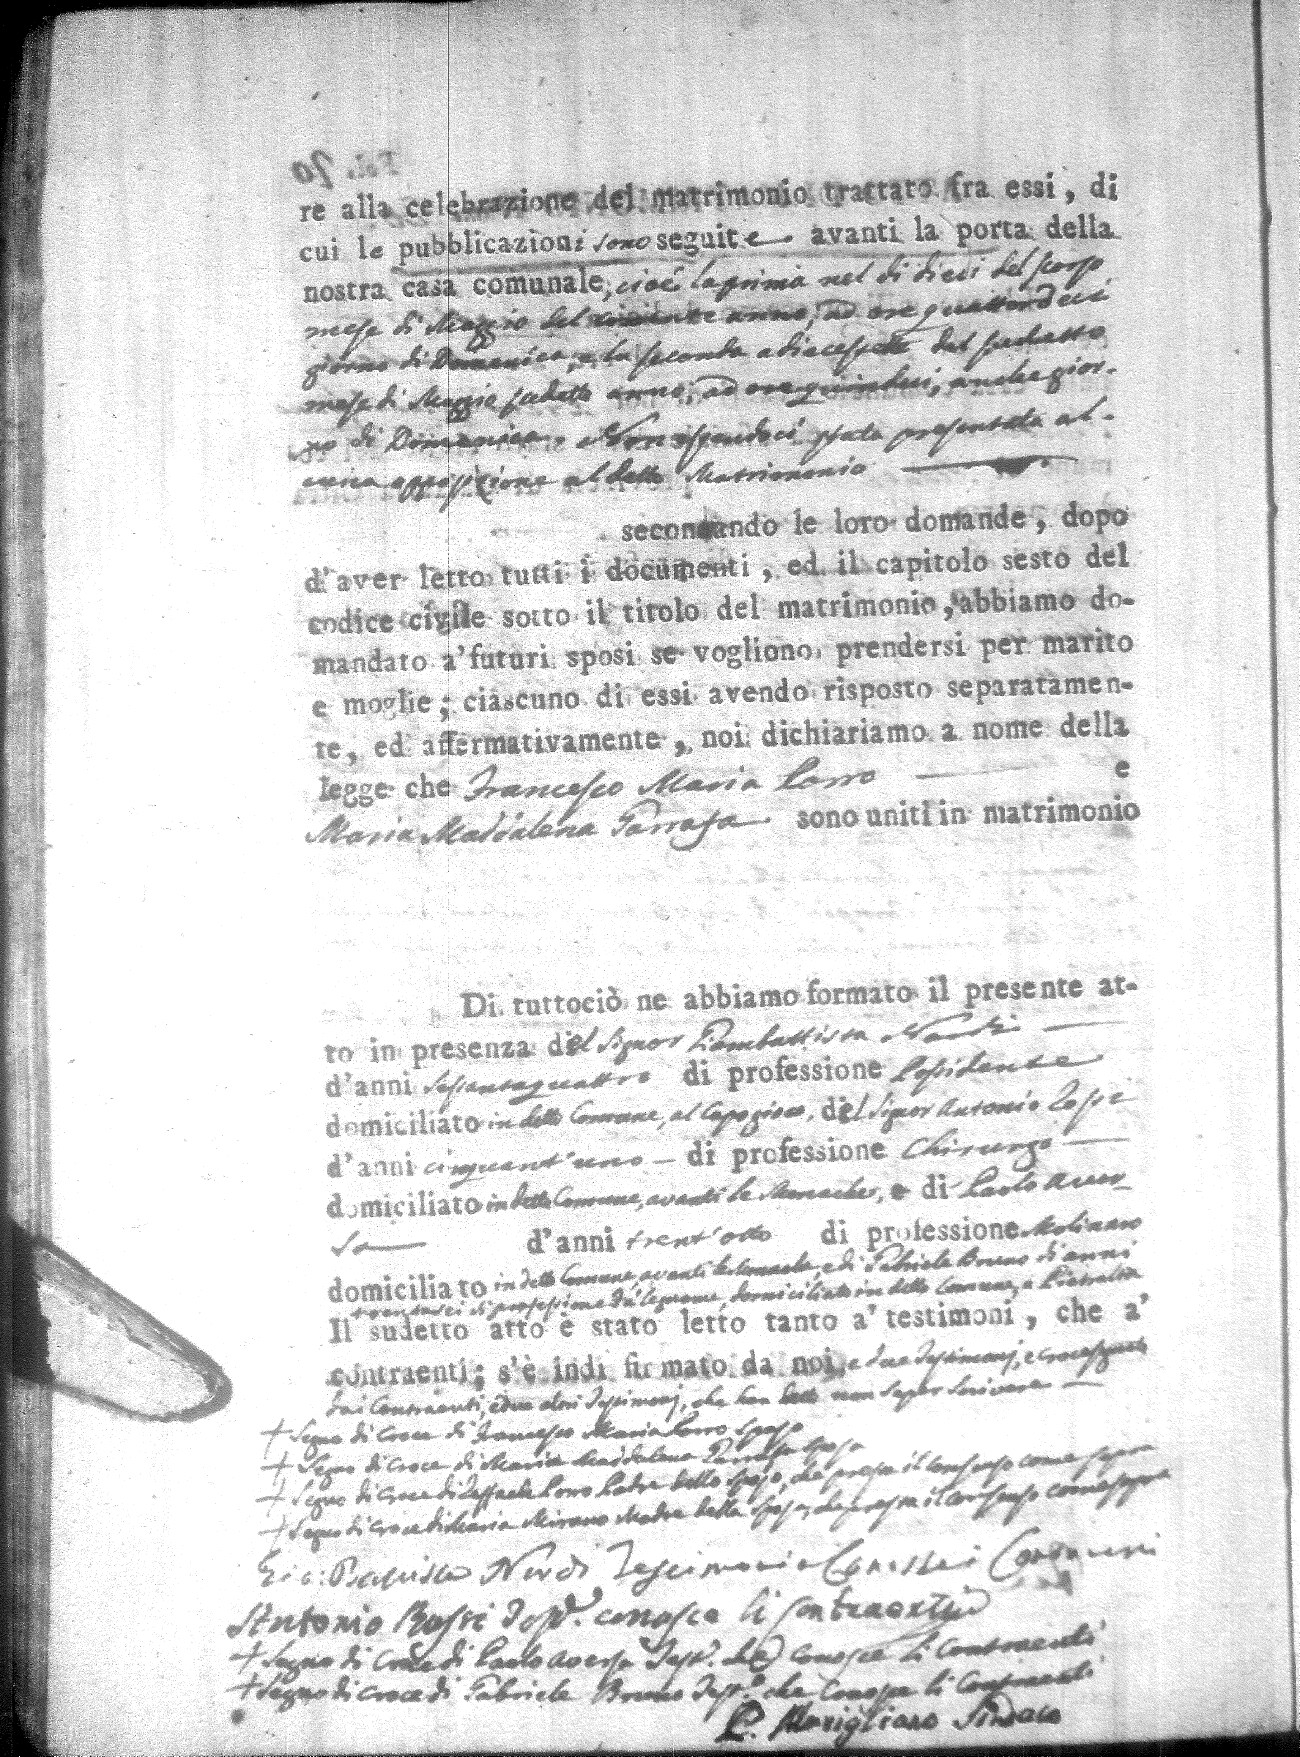 re alla celebrazione del matrimonio trattato fra essi, di
cui le pubblicazioni sono seguite avanti la porta della
nostra casa comunale, cioè la prima nel dì dieci del scorso
mese di Maggio del corrente anno, ad ore quattordeci
giorno di Domenica, e la seconda a diecessette del sudetto
mese di Maggio sudetto anno, ad ore quindeci, anche gior-
no di Domenica. Non essendoci stata presentata al-
cuna opposizione al detto Matrimonio
secondando le loro domande, dopo
d'aver letto tutti i documenti, ed il capitolo sesto del
codice civile sotto il titolo del matrimonio, abbiamo do-
mandato a' futuri sposi se vogliono prendersi per marito
e moglie; ciascuno di essi avendo risposto separatamen-
te, ed affermativamente, noi dichiariamo a nome della
legge che Francesco Maria Porro e
Maria Maddalena sono uniti in matrimonio
Di tuttociò ne abbiamo formato il presente at-
to in presenza del Signor Giambattista Nardi
d'anni sessantaquattro di professione Possidente
domiciliato in detto Comune, al Capogioco, del Signor Antonio
d'anni cinquant'uno di professione Chirurgo
domiciliato in detto Comune, avanti le Monache, e di Paolo Aver-
sa d'anni trent'otto di professione Molinaro
domiciliato in detto Comune, avanti le Monache, e di Gabriele Bruno di anni
trentasei di professione Falegname, domiciliato in detto Comune, a
Il sudetto atto è stato letto tanto a' testimoni, che a'
contraenti; s'è indi firmato da noi, e due Testimonj, e crocesegnato
dai Contraenti, e due altri Testimonj, che han detto non saper scrivere
+ Segno di Croce di Francesco Maria Porro sposo
+ Segno di Croce di Maria Maddalena sposa
+ Segno di Croce di Raffaele Porro Padre dello sposo, che presta il consenso come sopra
+ Segno di Croce di Maria Mirano Madre della sposa, che presta il consenso come sopra
Gio: Battista Nardi Testimonio Conosce i Contraenti
Antonio Test.º conosco li contraenti
+ Segno di Croce di Paolo Aversa Test.º che conosce li Contraenti
+ Segno di Croce di Gabriele Bruno Test.º che conosce li Contraenti
P. Marigliano Sindaco